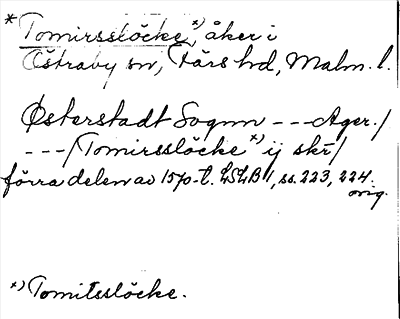 * Tomirsslöcke *), åker i
Östraby sn, Färs hd, Malm. l.
Østerstadt Sognn --- Ager./
---/Tomirsslöcke *) ij skr/
förra delen av 1570-t. LSLB 1, ss. 223, 224.
orig.
*) Tomitsslöcke.